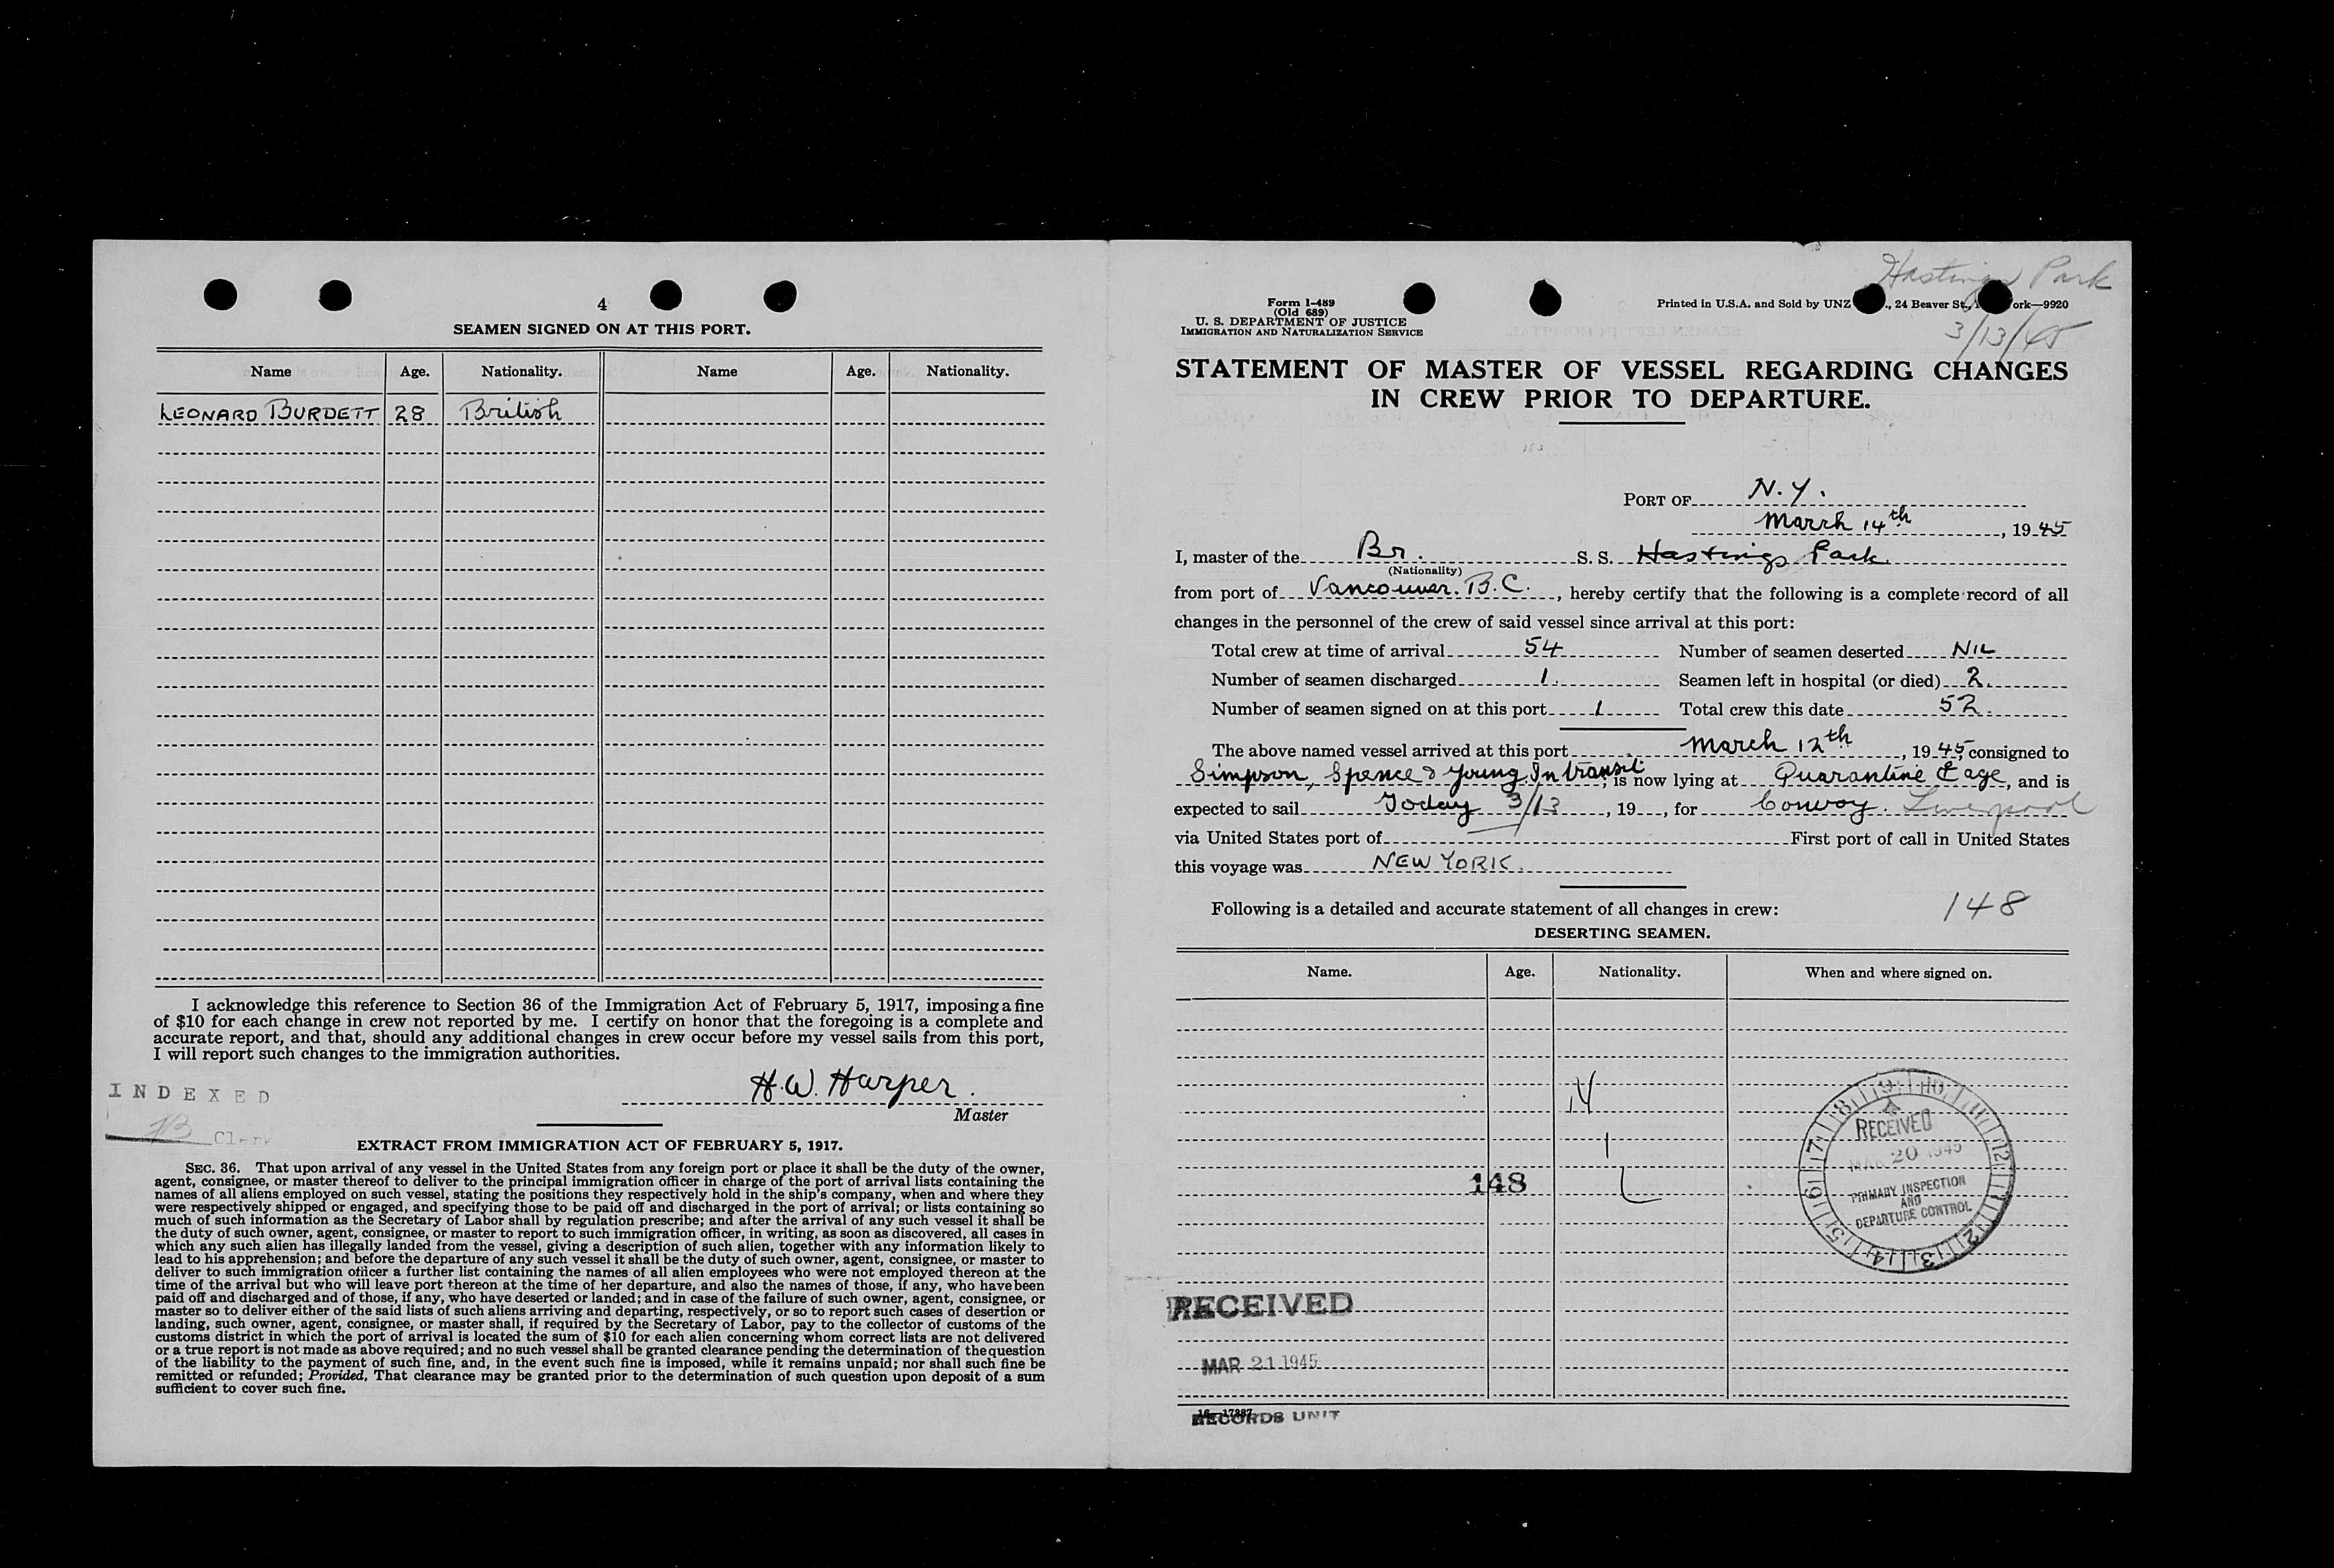 4
SEAMEN SIGNED ON AT THIS PORT.
Name Age. Nationality. Name Age. Nationality.
LEONARD BURDETT 28 British
I acknowledge this reference to Section 36 of the Immigration Act of February 5, 1917, imposing a fine
of $10 for each change in crew not reported by me. I certify on honor that the foregoing is a complete and
accurate report, and that, should any additional changes in crew occur before my vessel sails from this port,
I will report such changes to the immigration authorities.
INDEXED
H.W. Harper.
Master
Clerk
EXTRACT FROM IMMIGRATION ACT OF FEBRUARY 5, 1917.
SEC. 36. That upon arrival of any vessel in the United States from any foreign port or place it shall be the duty of the owner,
agent, consignee, or master thereof to deliver to the principal immigration officer in charge of the port of arrival lists containing the
names of all aliens employed on such vessel, stating the positions they respectively hold in the ship's company, when and where they
were respectively shipped or engaged, and specifying those to be paid off and discharged in the port of arrival; or lists containing so
much of such information as the Secretary of Labor shall by regulation prescribe; and after the arrival of any such vessel it shall be
the duty of such owner, agent, consignee, or master to report to such immigration officer, in writing, as soon as discovered, all cases in
which any such alien has illegally landed from the vessel, giving a description of such alien, together with any information likely to
lead to his apprehension; and before the departure of any such vessel it shall be the duty of such owner, agent, consignee, or master to
deliver to such immigration officer a further list containing the names of all alien employees who were not employed thereon at the
time of the arrival but who will leave port thereon at the time of her departure, and also the names of those, if any, who have been
paid off and discharged and of those, if any, who have deserted or landed; and in case of the failure of such owner, agent, consignee, or
master so to deliver either of the said lists of such aliens arriving and departing, respectively, or so to report such cases of desertion or
landing, such owner, agent, consignee, or master shall, if required by the Secretary of Labor, pay to the collector of customs of the
customs district in which the port of arrival is located the sum of $10 for each alien concerning whom correct lists are not delivered
or a true report is not made as above required; and no such vessel shall be granted clearance pending the determination of the question
of the liability to the payment of such fine, and, in the event such fine is imposed, while it remains unpaid; nor shall such fine be
remitted or refunded; Provided, That clearance may be granted prior to the determination of such question upon deposit of a sum
sufficient to cover such fine.
Hastings Park
3/13/45
Form I-489
(Old 689)
U. S. DEPARTMENT OF JUSTICE
IMMIGRATION AND NATURALIZATION SERVICE
Printed in U.S.A. and Sold by UNZ ., 24 Beaver St., ork—9920
STATEMENT OF MASTER OF VESSEL REGARDING CHANGES
IN CREW PRIOR TO DEPARTURE.
PORT OF N.Y.
March 14th, 1945
I, master of the Br. S. S. Hastings Park.
(Nationality)
from port of Vancouver. B.C., hereby certify that the following is a complete record of all
changes in the personnel of the crew of said vessel since arrival at this port:
Total crew at time of arrival 54 Number of seamen deserted NIL
Number of seamen discharged 1. Seamen left in hospital (or died) 2.
Number of seamen signed on at this port 1 Total crew this date 52.
The above named vessel arrived at this port March 12th, 1945, consigned to
Simpson, Spence & Young. In transit, is now lying at Quarantine, and is
expected to sail Today 3/13, 19 , for Convoy. Liverpool
via United States port of First port of call in United States
this voyage was NEW YORK.
Following is a detailed and accurate statement of all changes in crew: 148
DESERTING SEAMEN.
Name. Age. Nationality. When and where signed on.
N
I
L
148
RECEIVED
MAR 20 1945
PRIMARY INSPECTION
AND
DEPARTURE CONTROL
RECEIVED
MAR 21 1945
RECORDS UNIT